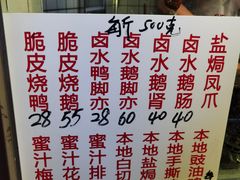 每斤 500克
脆皮烧鸭
28
脆皮烧鹅
55
卤水鸭脚亦
28
卤水鹅脚亦
60
卤水鹅肾
40
卤水鹅肠
40
盐焗凤爪
蜜汁梅
蜜汁花
蜜汁排
本地白切
本地盐焗
本地手撕
本地豉油